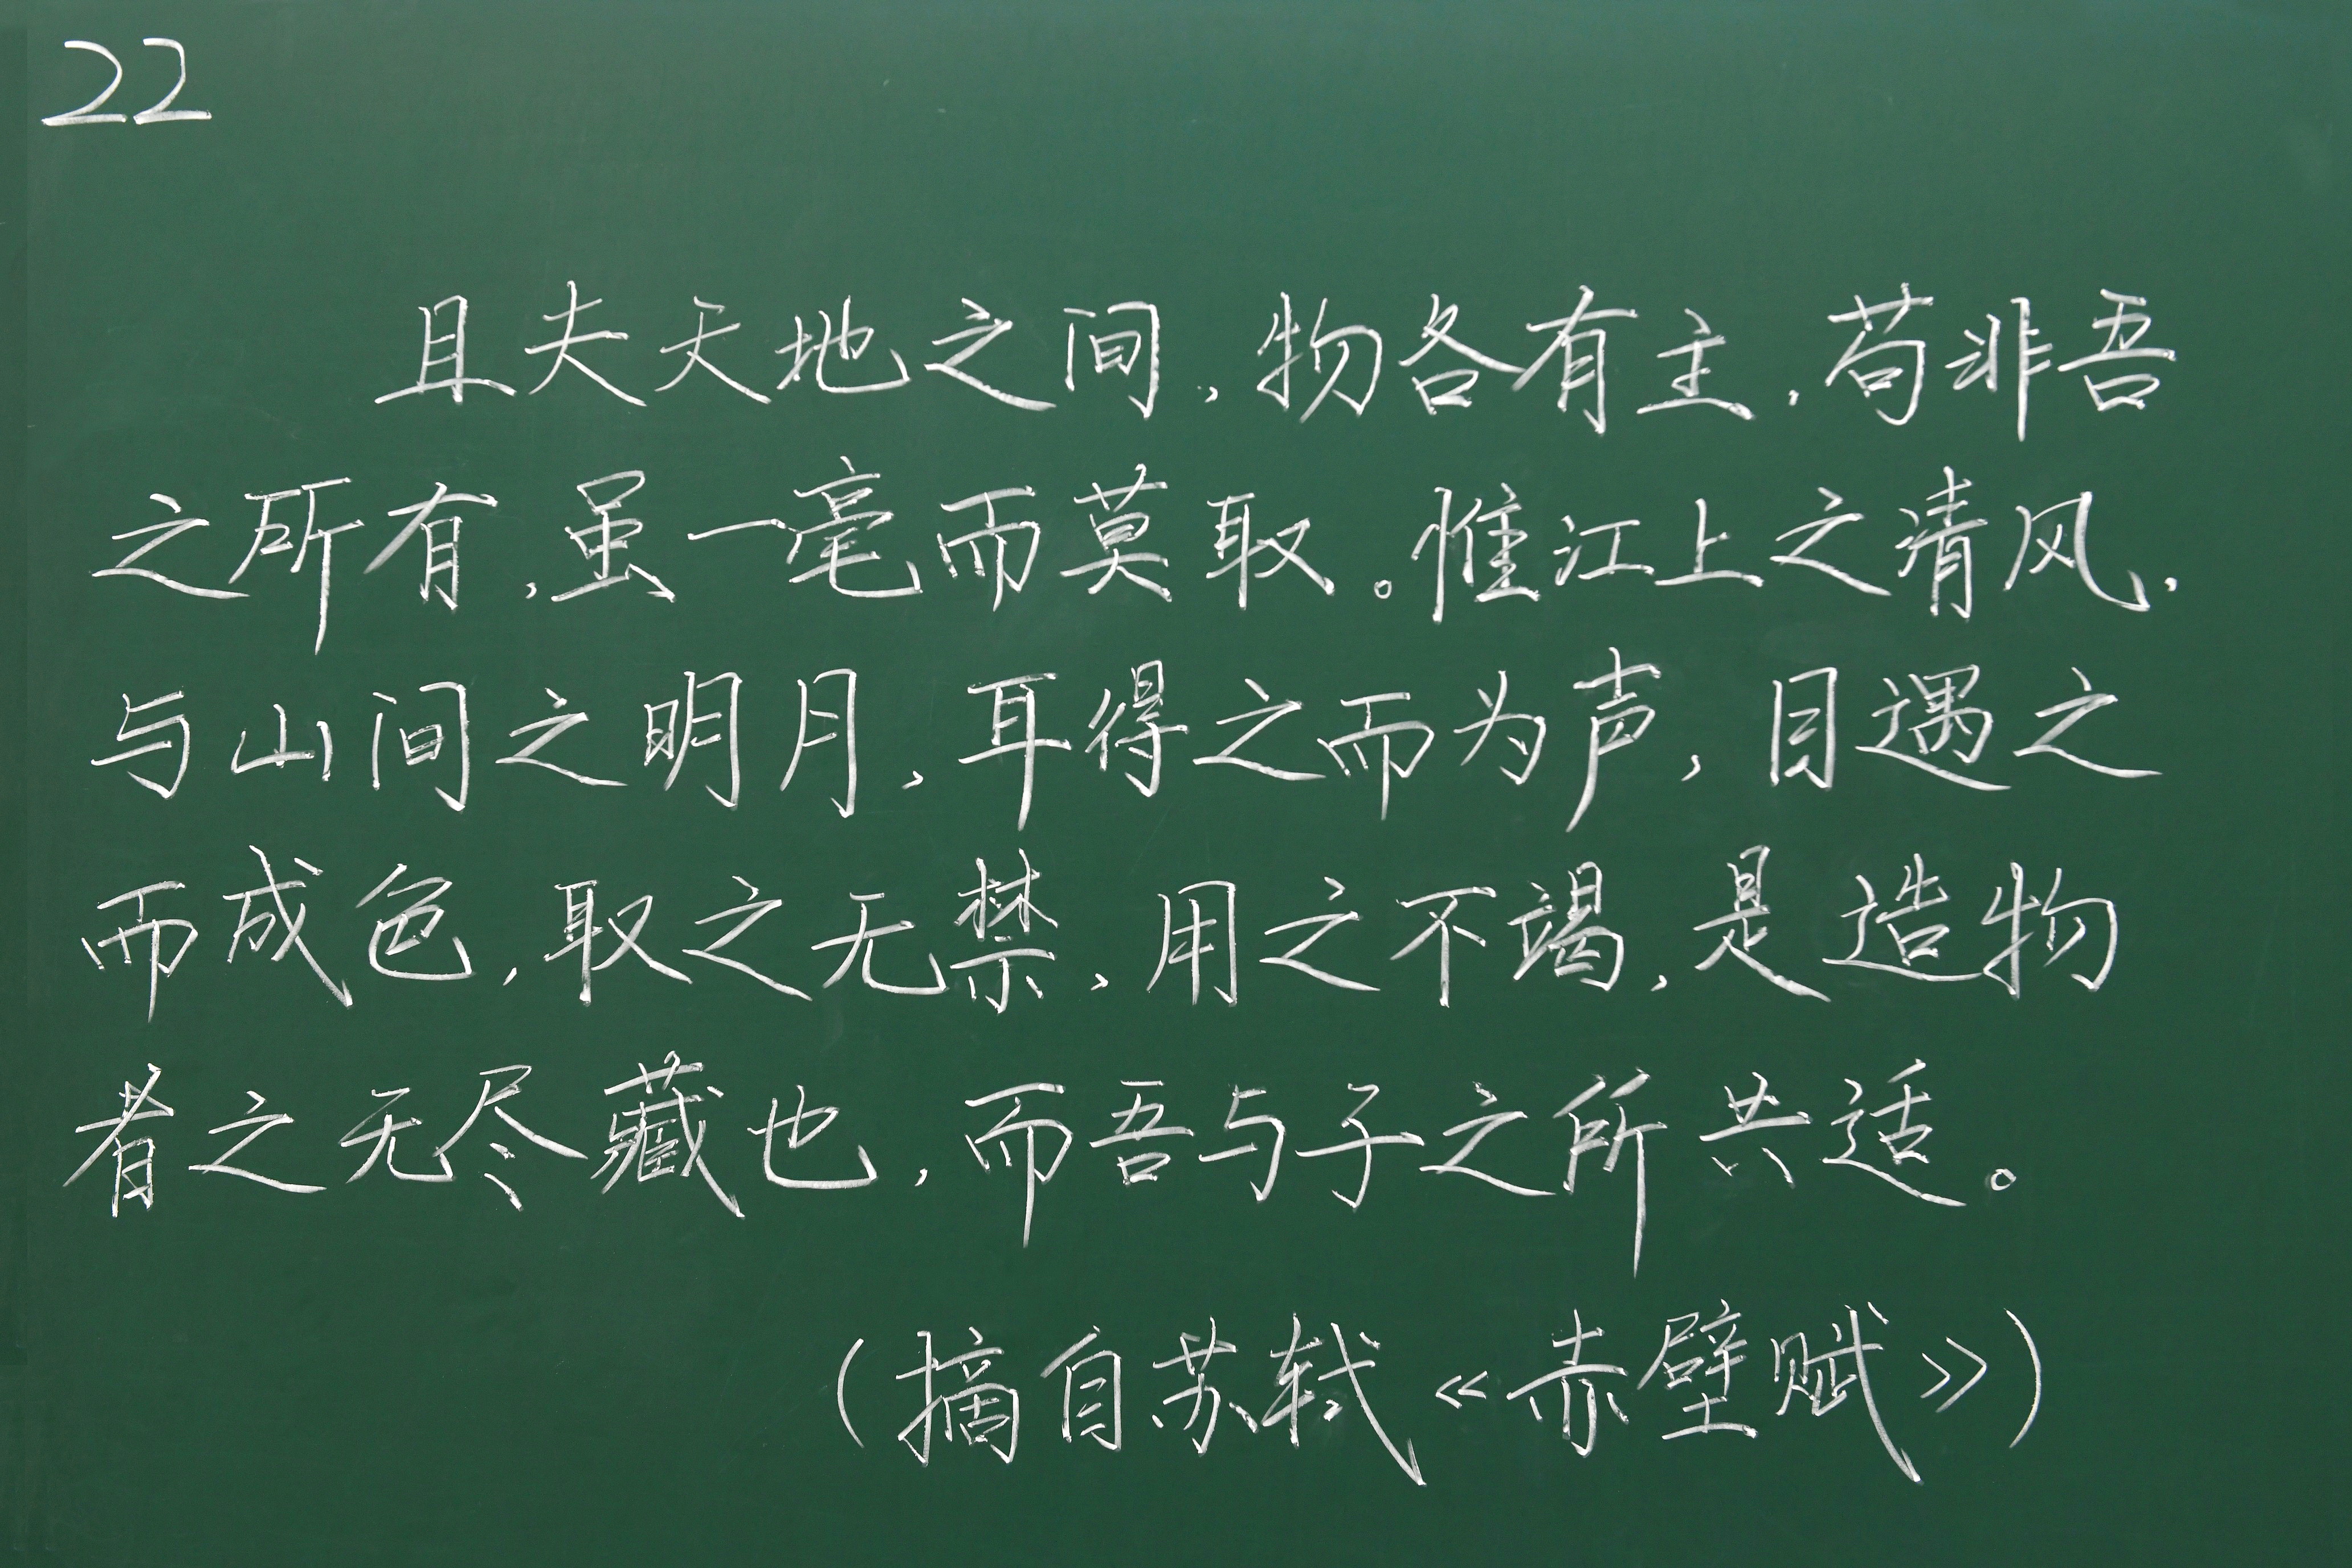 22
且夫天地之间，物各有主，苟非吾
之所有，虽一毫而莫取。惟江上之清风，
与山间之明月，耳得之而为声，目遇之
而成色，取之无禁，用之不竭，是造物
者之无尽藏也，而吾与子之所共适。
（摘自苏轼《赤壁赋》）